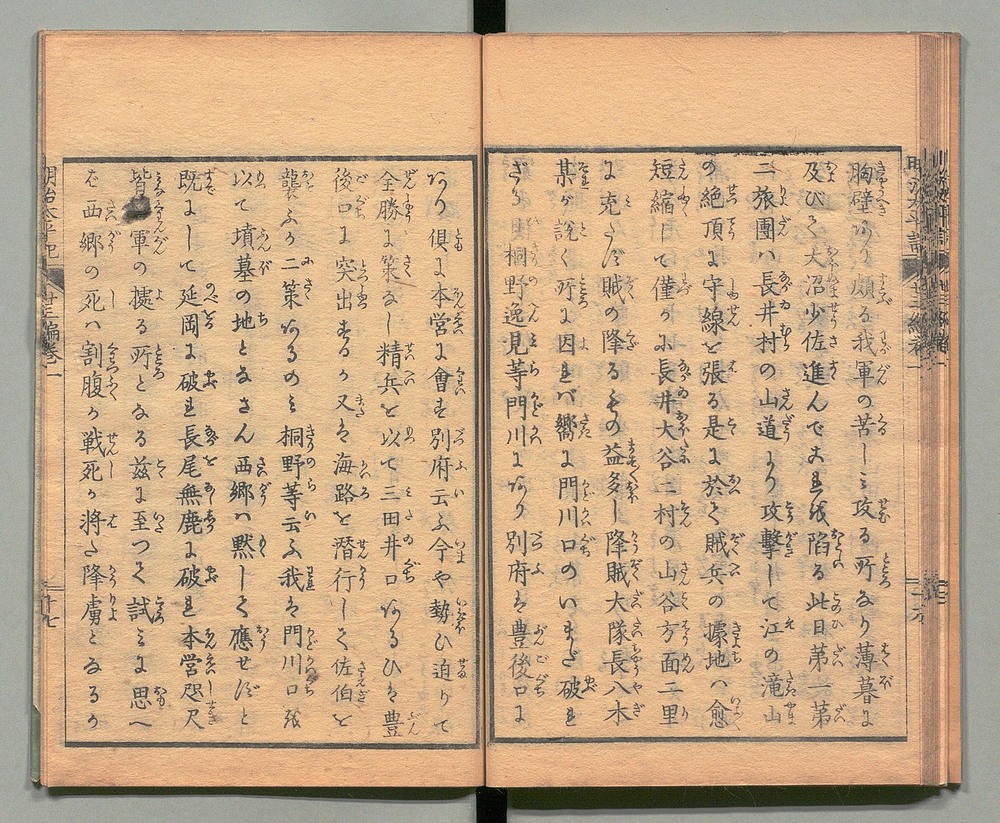 胸壁あり頗る我軍の苦しミ攻る所なり薄暮に
及びて大沼少佐進んでこれを陥る此日第一第
三旅團ハ長井村の山道より攻撃して江の滝山
の絶頂に守線を張る是に於て賊兵の據地ハ愈
短縮して僅かに長井大谷二村の山谷方面二里
に充たず賊の降るもの益多し降賊大隊長八木
某が説く所に因れバ嚮に門川口のいまだ破れ
ざる 桐野逸見等門川にあり別府は豊後口に
あり倶に本営に會す別府云ふ今や勢ひ迫りて
全勝に策なし精兵を以て三田井口あるひは豊
後口に突出するか又は海路を潜行して佐伯を
襲ふか二策あるのミ桐野等云ふ我は門川口を
以て墳墓の地となさん西郷ハ黙して應せずと
既にして延岡に破れ長尾無鹿に破れ本営咫尺
皆 軍の據る所となる茲に至つて試ミに思へ
は西郷の死ハ割腹か戦死か将た降虜となるか
明治太平記 廿三編巻一
十七